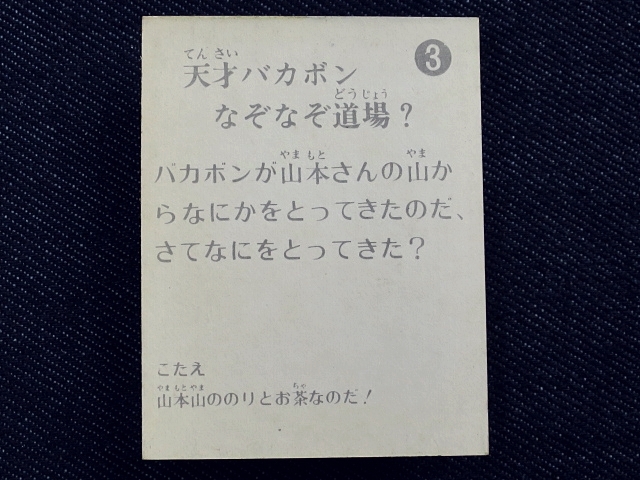 てんさい
天才バカボン
3
どうじょう
なぞなぞ道場？
やまもと やま
バカボンが山本さんの山か
らなにかをとってきたのだ、
さてなにをとってきた？
こたえ
やまもとやま ちゃ
山本山ののりとお茶なのだ！